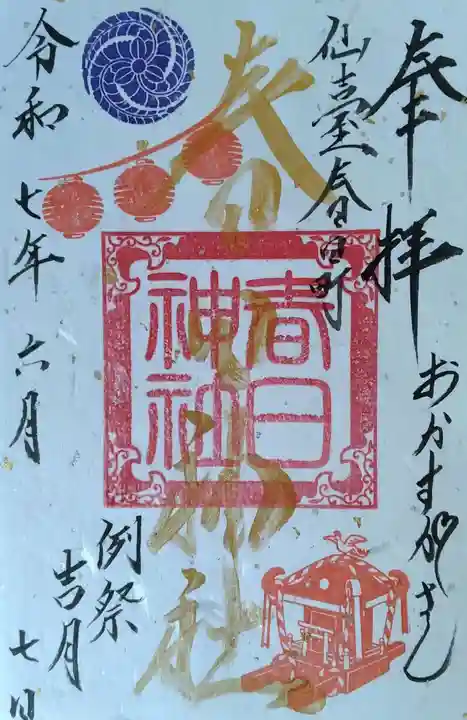 奉拝
おかすがさん
仙臺春日町
春日神社
春日
神社
例祭
吉月
七日
令和七年六月